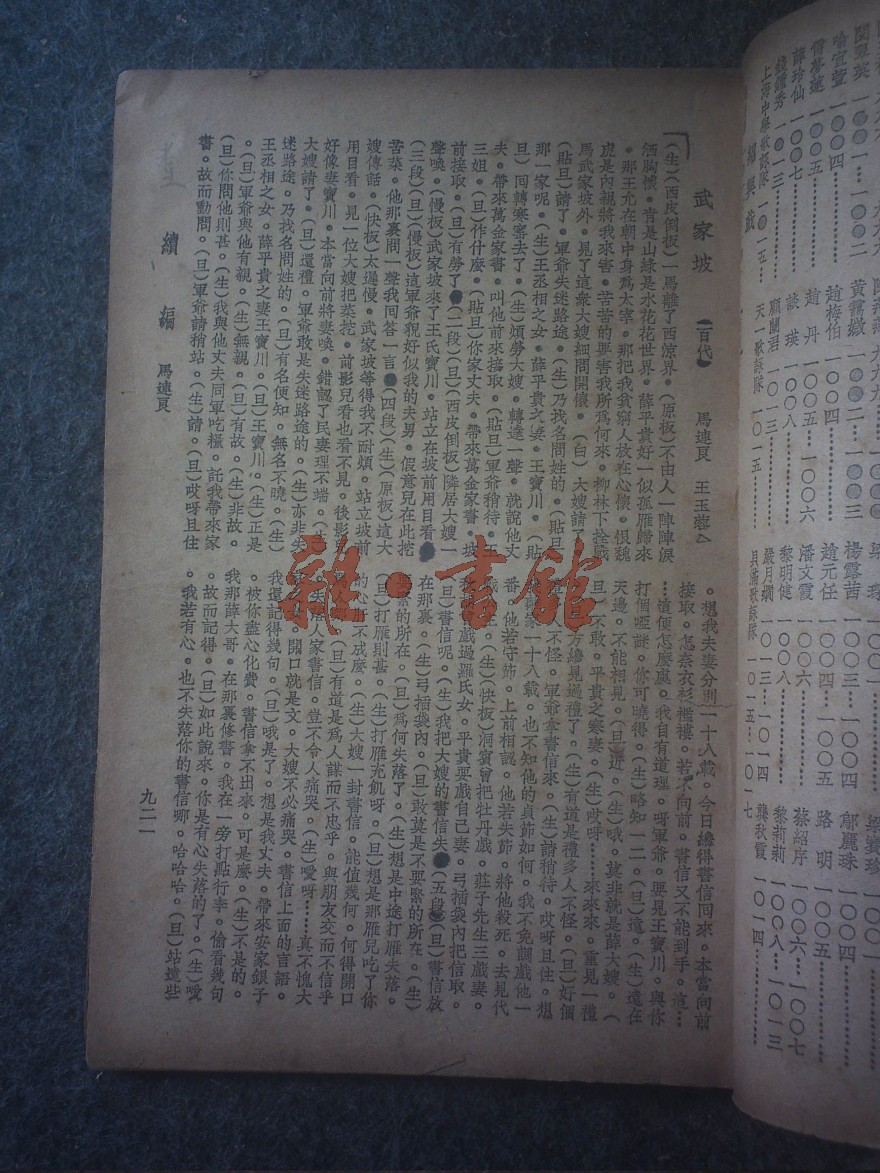 武家坡 【百代】 馬連良 王玉蓉
(生)(西皮倒板)一馬離了西涼界。(原板)不由人一陣陣淚
洒胸懷。青是山綠是水花花世界。薛平貴好一似孤雁歸來
。那王允在朝中身為太宰。那把我貧窮人放在心懷。恨魏
虎是內親將我來害。苦苦的要害我所為何來。柳林下拴戰
馬武家坡外。見了這衆大嫂細問開懷。(白)大嫂請了。
(貼旦)請了。軍爺失迷路途。(生)乃找名問姓的。(貼旦)
那一家呢。(生)王丞相之女。薛平貴之妻。王寶川。(貼
旦)回轉寒窰去了。(生)煩勞大嫂。轉達一聲。就說他丈
夫。帶來萬金家書。叫他前來接取。(貼旦)軍爺稍待。王
三姐。(旦)作什麼。(貼旦)你家丈夫。帶來萬金家書。坡
前接取。(旦)有勞了。(二段)(旦)(西皮倒板)隣居大嫂一
聲喚。(慢板)武家坡來了王氏寶川。站立在坡前用目看。
(三段)(慢板)這軍爺貌好似我的夫男。假意兒在此挖
苦菜。他那裏問一聲我回答一言。(四段)(生)(原板)這大
嫂傳話。(快板)太遲慢。武家坡等得我不耐煩。站立坡前
用目看。見一位大嫂把菜挖。前影兒看也看不見。後影兒
好像妻寶川。本當向前將妻喚。錯認了民妻理不端。
大嫂請了。(旦)還禮。軍爺敢是失迷路途的。(生)亦非失
迷路途。乃找名問姓的。(旦)有名便知。無名不曉。(生)
王丞相之女。薛平貴之妻王寶川。(旦)王寶川。(生)正是
(旦)軍爺與他有親。(生)無親。(旦)有故。(生)非故。
(旦)你問他則甚。(生)我與他丈夫同軍吃糧。託我帶來家
書。故而動問。(旦)軍爺請稍站。(生)請。(旦)哎呀且住
。想我夫妻分別一十八載。今日纔得書信回來。本當向前
接取。怎奈衣衫襤褸。若不向前。書信又不能到手。這……
這便怎麼處。我自有道理。呀軍爺。要見王寶川。與你
打個啞謎。你可曉得。(生)略知一二。(旦)遠。(生)遠在
天邊。不能相見。(旦)近。(生)哦。莫非就是薛大嫂。(
旦)不敢。平貴之寒妻。(生)哎呀……來來來。重見一禮
方纔見過禮了。(生)有道是禮多人不怪。(旦)好個
不怪。軍爺拿書信來。(生)請稍待。哎呀且住。想
一十八載。也不知他的貞節如何。我不免調戲他一
番。他若守節。上前相認。他若失節。將他殺死。去見代
戰(生)(快板)洞賓曾把牡丹戲。莊子先生三戲妻。
秋胡戲過羅氏女。平貴要戲自己妻。弓插袋內把信取。
書信呢。(生)我把大嫂的書信失(五段)(旦)書信放
在那裏。(生)弓插袋內。(旦)敢莫是不要緊的所在。(生)
緊的所在。(旦)為何失落了。(生)想是中途打雁失落。
(旦)打雁則甚。(生)打雁充飢呀。(旦)想是那雁兒吃了你
的心肝不成麼。(生)大嫂一封書信。能值幾何。何得開口
(旦)有道是為人謀而不忠乎。與朋友交而不信乎
失落人家書信。豈不令人痛哭。(生)愛呀……真不愧大
開口就是文。大嫂不必痛哭。書信上面的言語。
我還記得幾句。(旦)哦是了。想是我丈夫。帶來安家銀子
。被你盡心化費。書信拿不出來。可是麼。(生)不是的。
我那薛大哥。在那裏修書。我在一旁打點行李。偷看幾句
。故而記得。(旦)如此說來。你是有心失落的了。(生)噯
。我若有心。也不失落你的書信哪。哈哈哈。(旦)站遠些
續編 馬連良
九二一
雜·書館
紹興戲
黃霭嬡 一〇〇二
楊露茜 一〇〇三
喻宜萱 一〇〇四
趙梅伯 一〇〇一
趙元任 一〇〇四
鄺麗珠 一〇〇四
趙丹 一〇〇五
潘文霞 一〇〇六
路明 一〇〇五
薛玲仙 一〇〇七
談瑛 一〇〇八
黎明健 一〇〇八
蔡紹序 一〇〇六
顧蘭君 一〇一三
嚴月嫻 一〇一三
黎莉莉 一〇〇八
龔秋霞 一〇一四
天一歌詠隊 一〇一五